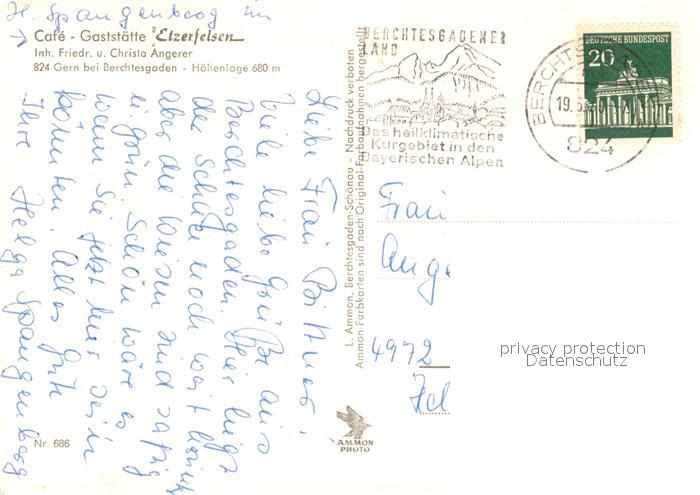 H. Spangenberg im
Café - Gaststätte "Etzerfelsen"
Inh. Friedr. u. Christa Angerer
824 Gern bei Berchtesgaden - Höhenlage 680 m
Liebe Frau
Viele liebe Grüße aus
Berchtesgaden. Hier liegt
der Schnee noch weit herunter
aber die Wiesen sind saftig
u. grün. Schön wäre es
wenn Sie jetzt hier sein
könnten. Alles Gute
Ihre Helga Spangenberg
Nr. 686
L. Ammon, Berchtesgaden-Schönau - Nachdruck verboten
Ammon Farbkarten sind nach Original-Farbaufnahmen hergestellt
AMMON
PHOTO
BERCHTESGADENER
LAND
Das heilklimatische
Kurgebiet in den
Bayerischen Alpen
DEUTSCHE BUNDESPOST
20
19.5.
824
Frau
Ang
4972
privacy protection
Datenschutz